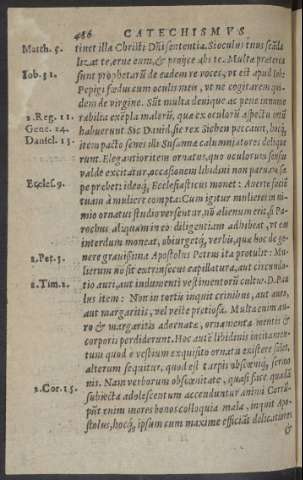 486 CATECHISMVS
Matth. 5. tinet illa Christi Dñi sententia. Si oculus tuus scãda
lizat te, erue eum, & proijce abs te. Multæ præterea
Iob. 31. sunt prophetarũ de eadem re voces, vt est apud Iob:
Pepigi fœdus cum oculis meis, vt ne cogitarem qui-
dem de virgine. Sũt multa deniq̃ue ac pene innume
2. Reg. 11. rabilia exẽpla malorũ, quæ ex oculorũ aspectu ortũ
Gene. 34. habuerunt. Sic Dauid, sic rex Sichem peccauit, hocq́,
Daniel. 13. item pacto senes illi Susannæ calumniatores delique
runt. Elegantior item ornatus, quo oculorum sensus
valde excitatur, occasionem libidini non paruam sæ
Eccles. 9. pe præbet: ideoq́, Ecclesiasticus monet: Auerte faciẽ
tuam à muliere compta: Cum igitur mulieres in ni-
mio ornatus studio versentur, nõ alienum erit, si Pa-
rochus aliquam in eo diligentiam adhibeat, vt eas
interdum moneat, obiurgetq́, verbis, quæ hoc de ge-
2. Pet. 3. nere grauissima Apostolus Petrus ita protulit: Mu-
lierum nõ sit extrinsecus capillatura, aut circunda-
2. Tim. 2. tio auri, aut indumenti vestimentorũ cultus. D. Pau
lus item: Non in tortis inquit crinibus, aut auro,
aut margaritis, vel veste pretiosa. Multæ enim au-
ro & margaritis adornatæ, ornamenta mentis &
corporis perdiderunt. Hoc autẽ libidinis incitamen-
tum quod è vestium exquisito ornatu existere solet,
alterum sequitur, quod est turpis obscœniq́, sermo
nis. Nam verborum obscœnitate, quasi face quadã
2. Cor. 15. subiecta adolescentum accenduntur animi. Corrũ-
pũt enim mores bonos colloquia mala, inquit Apo-
stolus, hocq́, ipsum cum maxime efficiãt delicatiores
&